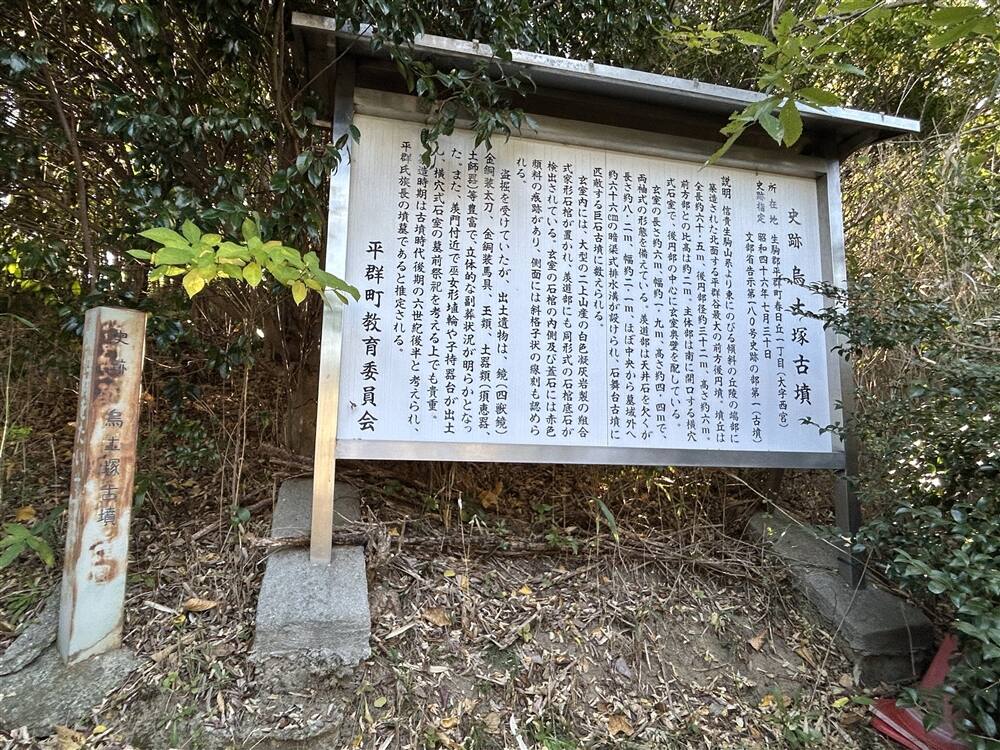 史跡 烏土塚古墳
所在地 生駒郡平群町春日丘一丁目(大字西宮)
史跡指定 昭和四十六年七月三十日
文部省告示第一八〇号史跡の部第一(古墳)
説明 信貴生駒山系より東にのびる傾斜の丘陵の端部に
築造された北面する平群谷最大の前方後円墳。墳丘は
全長約六十・五m、後円部径約三十二m、高さ約六m。
前方部との比高は約二m。主体部は南に開口する横穴
式石室で、後円部の中心に玄室奥壁を配している。
玄室の長さ約六m、幅約二・九m、高さ約四・四mで、
両袖式の形態を備えている。羨道部は天井石を欠くが
長さ約八・二m、幅約二・一m、ほぼ中央から墓域外へ
約六十六cmの暗渠式排水溝が設けられ、石舞台古墳に
匹敵する巨石古墳に数えられる。
玄室内には、大型の二上山産の白色凝灰岩製の組合
式家形石棺が置かれ、羨道部にも同形式の石棺底石が
検出されている。玄室の石棺の内側及び蓋石には赤色
顔料の痕跡があり、側面には斜格子状の線刻も認めら
れる。
盗掘を受けていたが、出土遺物は、鏡(四獣鏡)
金銅装太刀、金銅装馬具、玉類、土器類(須恵器、
土師器)等豊富で、立体的な副葬状況が明らかとなっ
た。また、羨門付近で巫女形埴輪や子持器台が出土
し、横穴式石室の墓前祭祀を考える上でも貴重。
造時期は古墳時代後期の六世紀後半と考えられ、
平群氏族長の墳墓であると推定される。
平群町教育委員会
史跡 烏土塚古墳